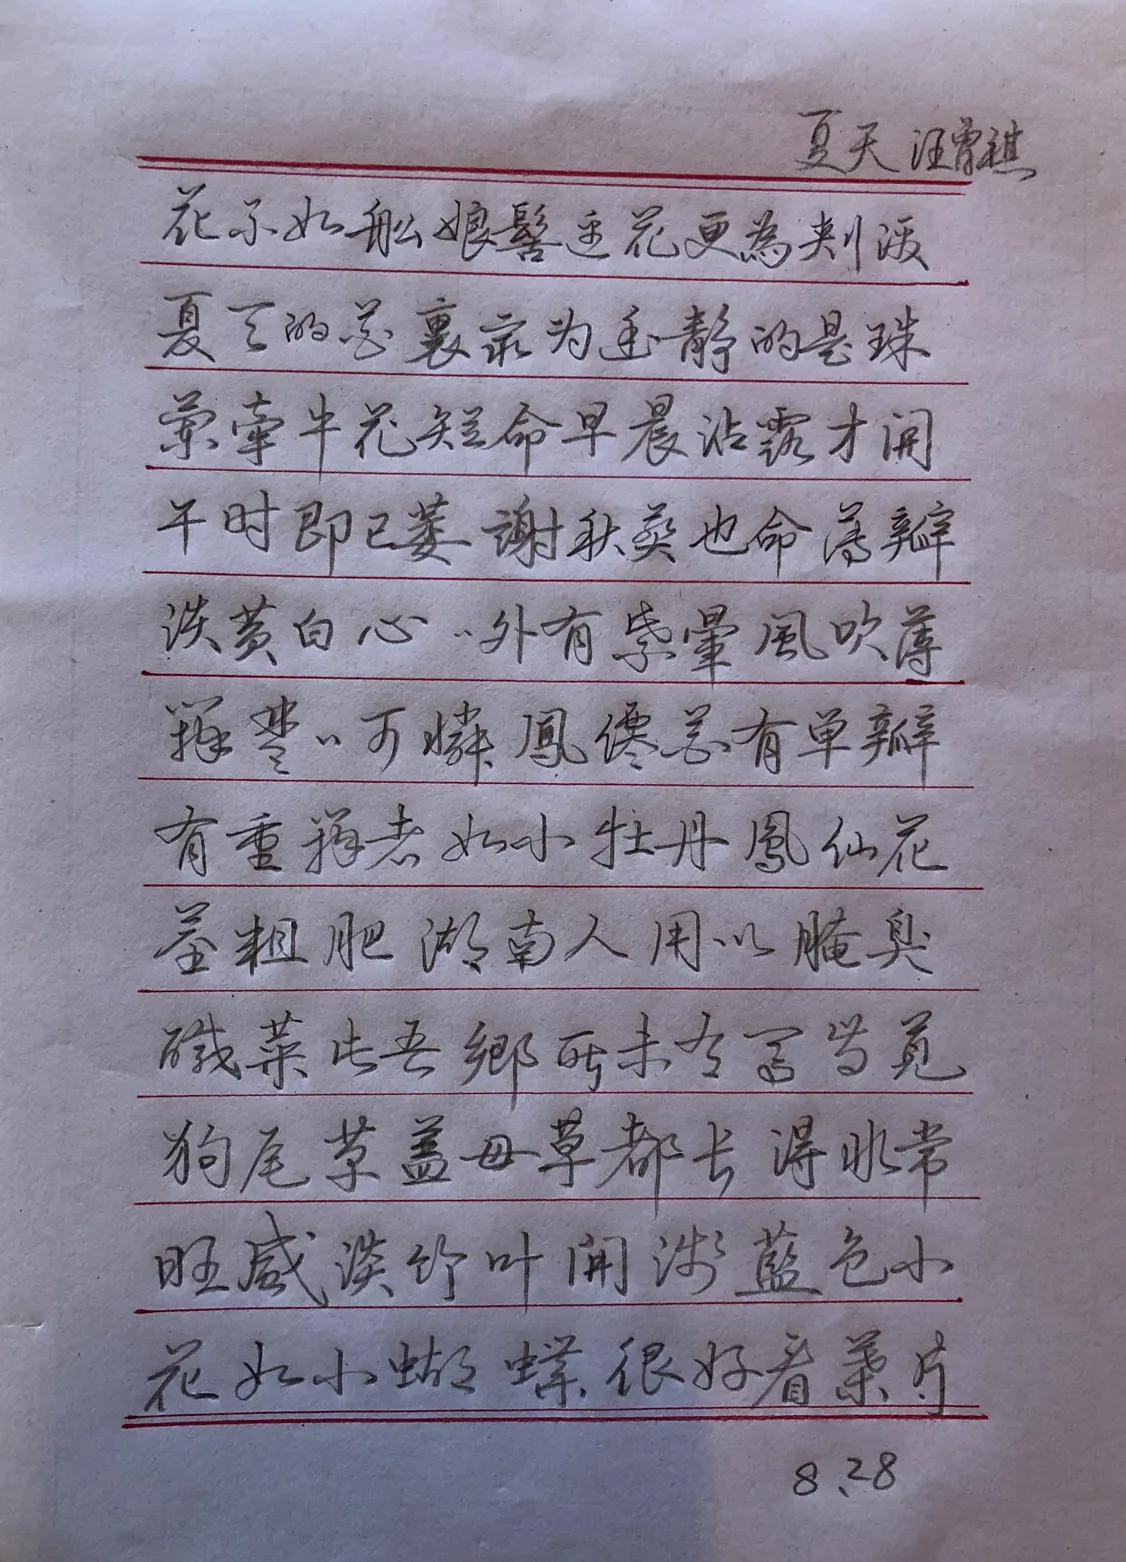 夏天 汪曾祺
花不如船娘髻边花更為刺泼
夏天的花裏最为幽静的是珠
蘭牽牛花短命早晨沾露才開
午时即已萎謝秋葵也命薄瓣
淡黄白心〻外有紫暈風吹薄
瓣楚〻可憐鳳僊花有单瓣
有重瓣者如小牡丹鳳仙花
莖粗肥湖南人用以腌臭
鹹菜此吾鄉所未有富筍見
狗尾草益母草都长得非常
旺盛淡竹叶開浅藍色小
花如小蝴蝶很好看葉片
8、28